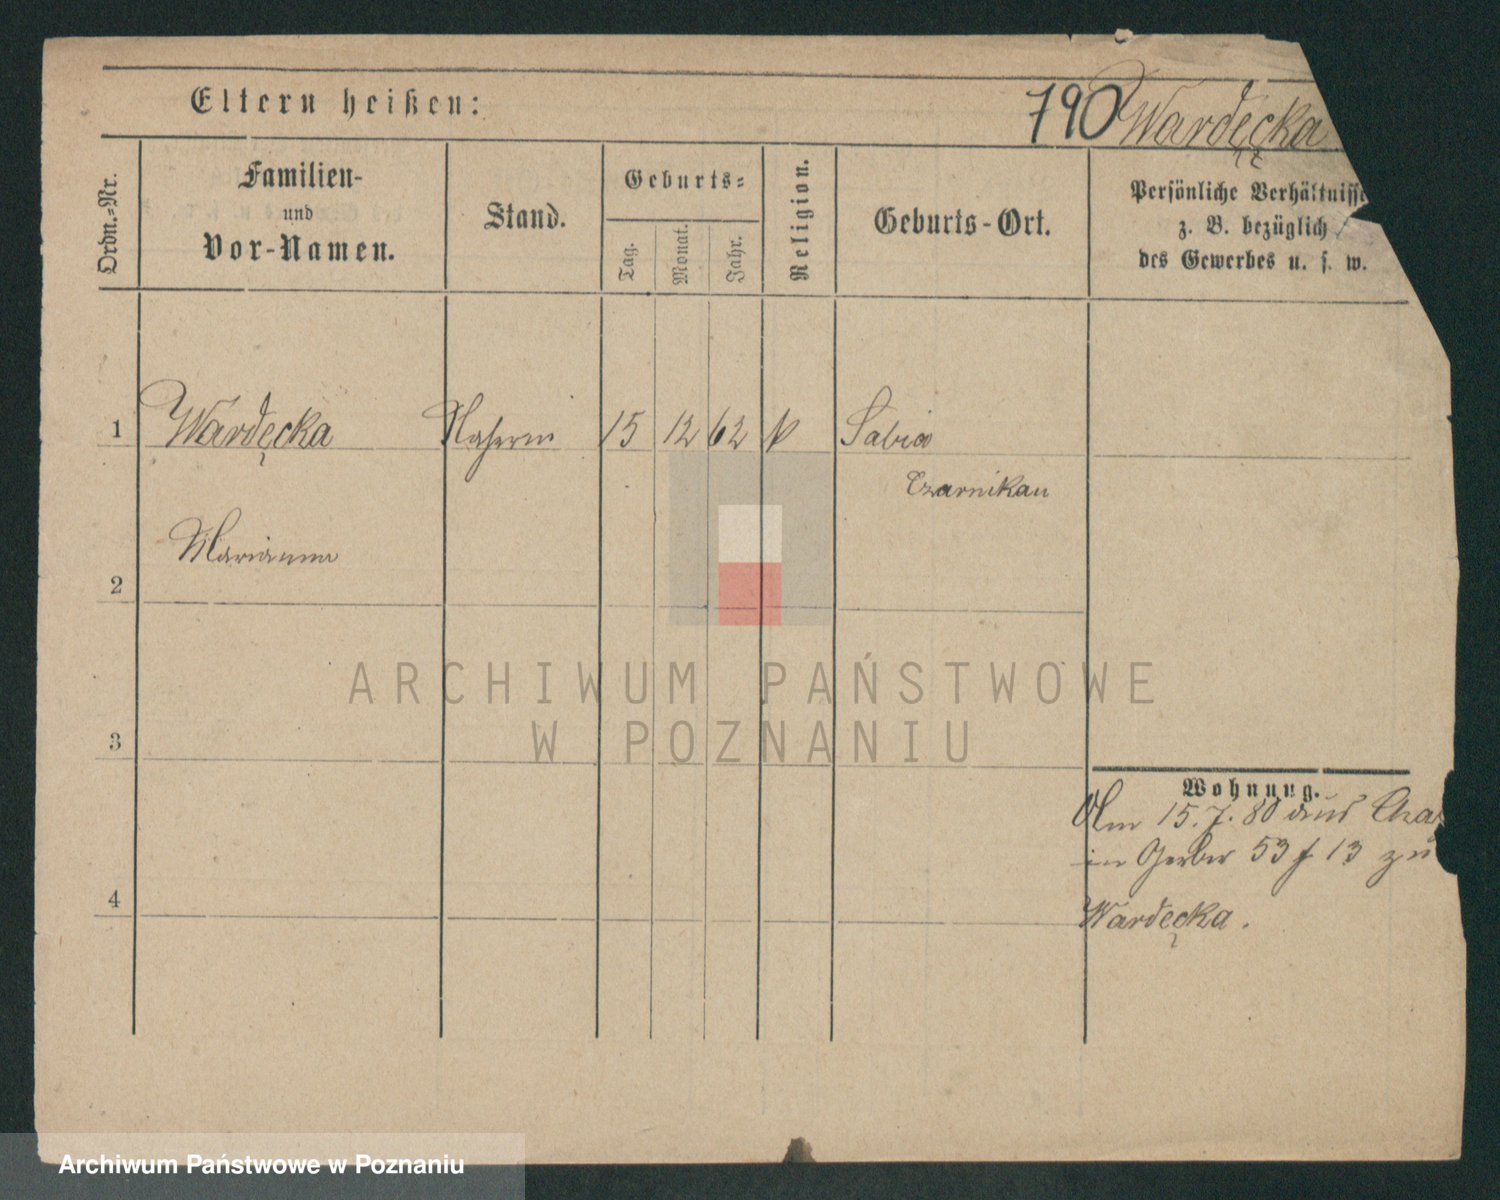 Eltern heißen:
790 Wardęcka
Ordn.-Nr.
Familien-
und
Vor-Namen.
Stand.
Geburts-
Tag.
Monat.
Jahr.
Religion.
Geburts-Ort.
Persönliche Verhältnisse
z. B. bezüglich
des Gewerbes u. s. w.
1 Wardęcka Näherin 15 12 62 k Sabia
Czarnikau
Marianna
2
3
4
Wohnung.
Am 15.7.80 aus
in Gerber 53 f 13 zu
Wardęcka.
ARCHIWUM PAŃSTWOWE
W POZNANIU
Archiwum Państwowe w Poznaniu